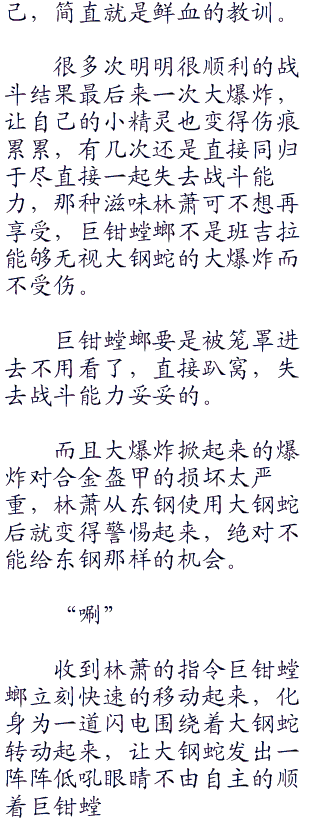 己，简直就是鲜血的教训。
很多次明明很顺利的战
斗结果最后来一次大爆炸，
让自己的小精灵也变得伤痕
累累，有几次还是直接同归
于尽直接一起失去战斗能
力，那种滋味林萧可不想再
享受，巨钳螳螂不是班吉拉
能够无视大钢蛇的大爆炸而
不受伤。
巨钳螳螂要是被笼罩进
去不用看了，直接趴窝，失
去战斗能力妥妥的。
而且大爆炸掀起来的爆
炸对合金盔甲的损坏太严
重，林萧从东钢使用大钢蛇
后就变得警惕起来，绝对不
能给东钢那样的机会。
“唰”
收到林萧的指令巨钳螳
螂立刻快速的移动起来，化
身为一道闪电围绕着大钢蛇
转动起来，让大钢蛇发出一
阵阵低吼眼睛不由自主的顺
着巨钳螳